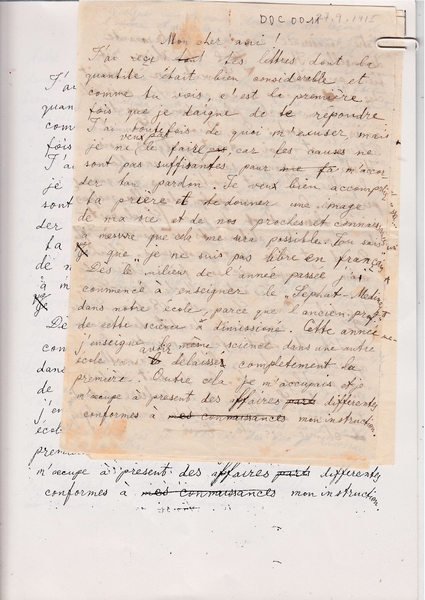 DOC 001 17.9.1915
Mon cher ami !
J'ai reçu tout tes lettres dont la
quantité était bien considerable et
comme tu vois, c'est la première
fois que je daigne de te repondre
J'ai toutefois de quoi m'exuser, mais
je ne veux pas le faire, car les causes ne
sont pas suffisantes pour me fa m'accor
der ton pardon. Je veux bien accomplir
ta prière et de donner une image
de ma vie et de nos proches et connais
à mesure que cela me sera possible. Tu sais
que je ne suis pas libre en français
Dès le milieu de l'année passée j'ai
commencé à enseigner
dans notre école parce que l'ancien prof
de cette science a démissioné. Cette année
j'enseigne aussi même science dans une autre
école sans délaisser complètement la
première. Outre cela je m'accupais et je
m'accupe à présent des affaires parts differents,
conformes à mes connaissances mon instruction.
J'ai
quan
com
fois
J'a
je
sont
der
ta
de
à m
je
Dè
con
dans
de
j'en
école
premi
m'accupe à présent des affaires parts differents,
conformes à mes connaissances mon instruction.